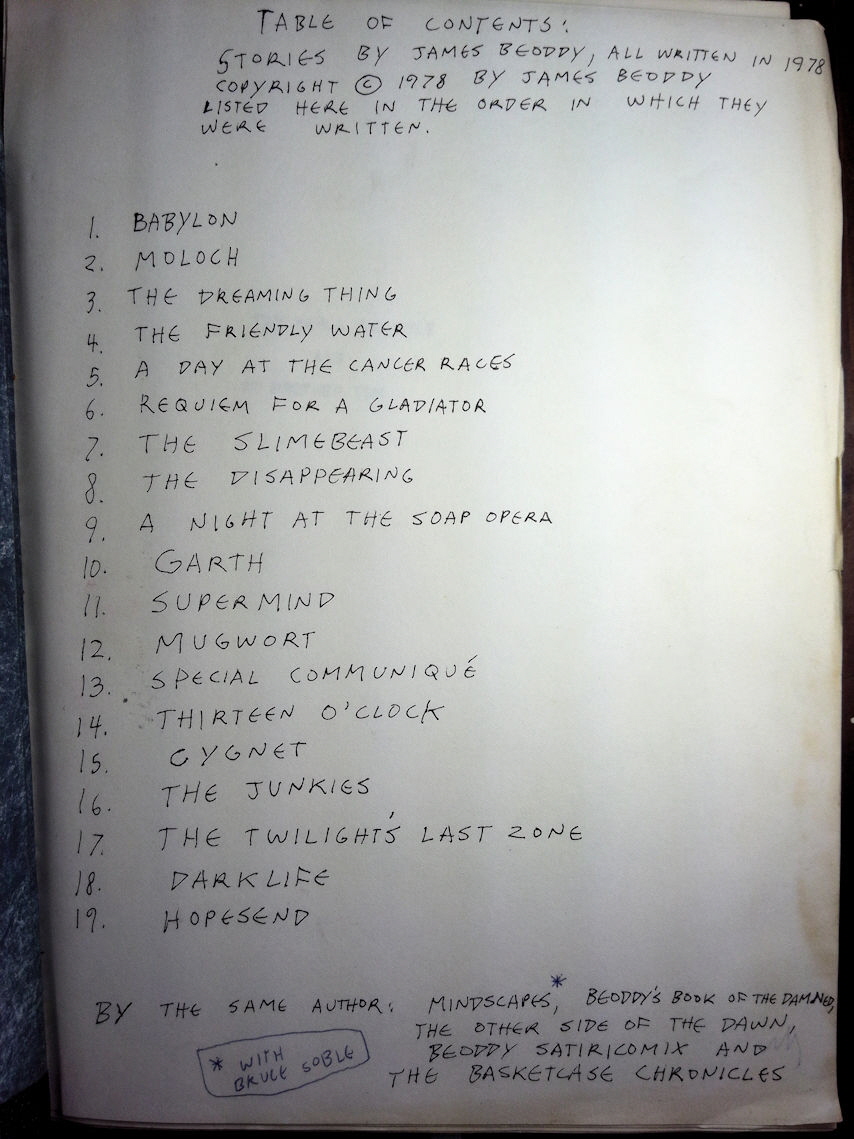 TABLE OF CONTENTS:
STORIES BY JAMES BEODDY, ALL WRITTEN IN 1978
COPYRIGHT © 1978 BY JAMES BEODDY
LISTED HERE IN THE ORDER IN WHICH THEY
WERE WRITTEN.
1. BABYLON
2. MOLOCH
3. THE DREAMING THING
4. THE FRIENDLY WATER
5. A DAY AT THE CANCER RACES
6. REQUIEM FOR A GLADIATOR
7. THE SLIMEBEAST
8. THE DISAPPEARING
9. A NIGHT AT THE SOAP OPERA
10. GARTH
11. SUPERMIND
12. MUGWORT
13. SPECIAL COMMUNIQUÉ
14. THIRTEEN O'CLOCK
15. CYGNET
16. THE JUNKIES
17. THE TWILIGHT'S LAST ZONE
18. DARKLIFE
19. HOPESEND
BY THE SAME AUTHOR: MINDSCAPES*, BEODDY'S BOOK OF THE DAMNED,
THE OTHER SIDE OF THE DAWN,
BEODDY SATIRICOMIX AND
THE BASKETCASE CHRONICLES
* WITH
BRUCE SOBLE